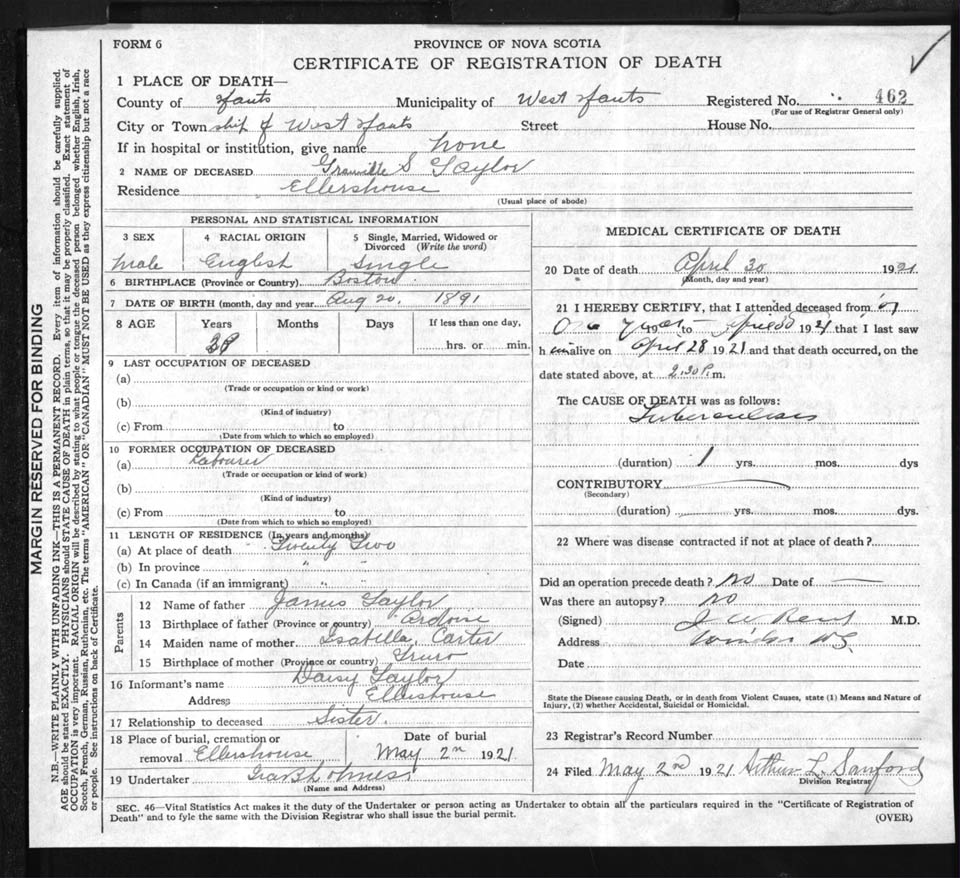 FORM 6
PROVINCE OF NOVA SCOTIA
CERTIFICATE OF REGISTRATION OF DEATH
1 PLACE OF DEATH—
County of Hants Municipality of West Hants Registered No. 462
(For use of Registrar General only)
City or Town ship of West Hants Street House No.
If in hospital or institution, give name none
2 NAME OF DECEASED Granville S Taylor
Residence Ellershouse
(Usual place of abode)
PERSONAL AND STATISTICAL INFORMATION
3 SEX 4 RACIAL ORIGIN 5 Single, Married, Widowed or Divorced (Write the word)
Male English Single
6 BIRTHPLACE (Province or Country) Boston
7 DATE OF BIRTH (month, day and year) Aug 20, 1891
8 AGE Years Months Days If less than one day,
29 hrs. or min.
9 LAST OCCUPATION OF DECEASED
(a)
(Trade or occupation or kind or work)
(b)
(Kind of industry)
(c) From to
(Date from which to which so employed)
10 FORMER OCCUPATION OF DECEASED
(a) Labourer
(Trade or occupation or kind of work)
(b)
(Kind of industry)
(c) From to
(Date from which to which so employed)
11 LENGTH OF RESIDENCE (In years and months)
(a) At place of death Twenty Two
(b) In province " "
(c) In Canada (if an immigrant) " "
Parents
12 Name of father James Taylor
13 Birthplace of father (Province or country) Ardoise
14 Maiden name of mother Isabella Carter
15 Birthplace of mother (Province or country) Truro
16 Informant's name Daisy Taylor
Address Ellershouse
17 Relationship to deceased Sister
18 Place of burial, cremation or removal Ellershouse
Date of burial May 2nd 1921
19 Undertaker Ira B Holmes
(Name and Address)
MEDICAL CERTIFICATE OF DEATH
20 Date of death April 30 1921
(Month, day and year)
21 I HEREBY CERTIFY, that I attended deceased from
One Year to April 30 1921 that I last saw
him alive on April 28 1921 and that death occurred, on the
date stated above, at 2.30 P.m.
The CAUSE OF DEATH was as follows:
Tuberculosis
(duration) 1 yrs. mos. dys
CONTRIBUTORY
(Secondary)
(duration) yrs. mos. dys.
22 Where was disease contracted if not at place of death?
Did an operation precede death? No Date of —
Was there an autopsy? No
(Signed) M.D.
Address Windsor NS
Date
State the Disease causing Death, or in death from Violent Causes, state (1) Means and Nature of
Injury, (2) whether Accidental, Suicidal or Homicidal.
23 Registrar's Record Number
24 Filed May 2nd 1921 Arthur L. Sanford
Division Registrar
SEC. 46—Vital Statistics Act makes it the duty of the Undertaker or person acting as Undertaker to obtain all the particulars required in the "Certificate of Registration of
Death" and to fyle the same with the Division Registrar who shall issue the burial permit.
(OVER)
MARGIN RESERVED FOR BINDING
N.B.—WRITE PLAINLY WITH UNFADING INK—THIS IS A PERMANENT RECORD. Every item of information should be carefully supplied.
AGE should be stated EXACTLY. PHYSICIANS should STATE CAUSE OF DEATH in plain terms, so that it may be properly classified. Exact statement of
OCCUPATION is very important. RACIAL ORIGIN will be described by stating to what people or tongue the deceased person belonged, whether English, Irish,
Scotch, French, German, Russian, Ruthenian, etc. The terms "AMERICAN" OR "CANADIAN" MUST NOT BE USED as they express citizenship but not a race
or people. See instructions on back of Certificate.